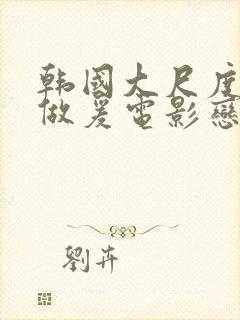 韩國大尺度
做爰電影戀
劉卉